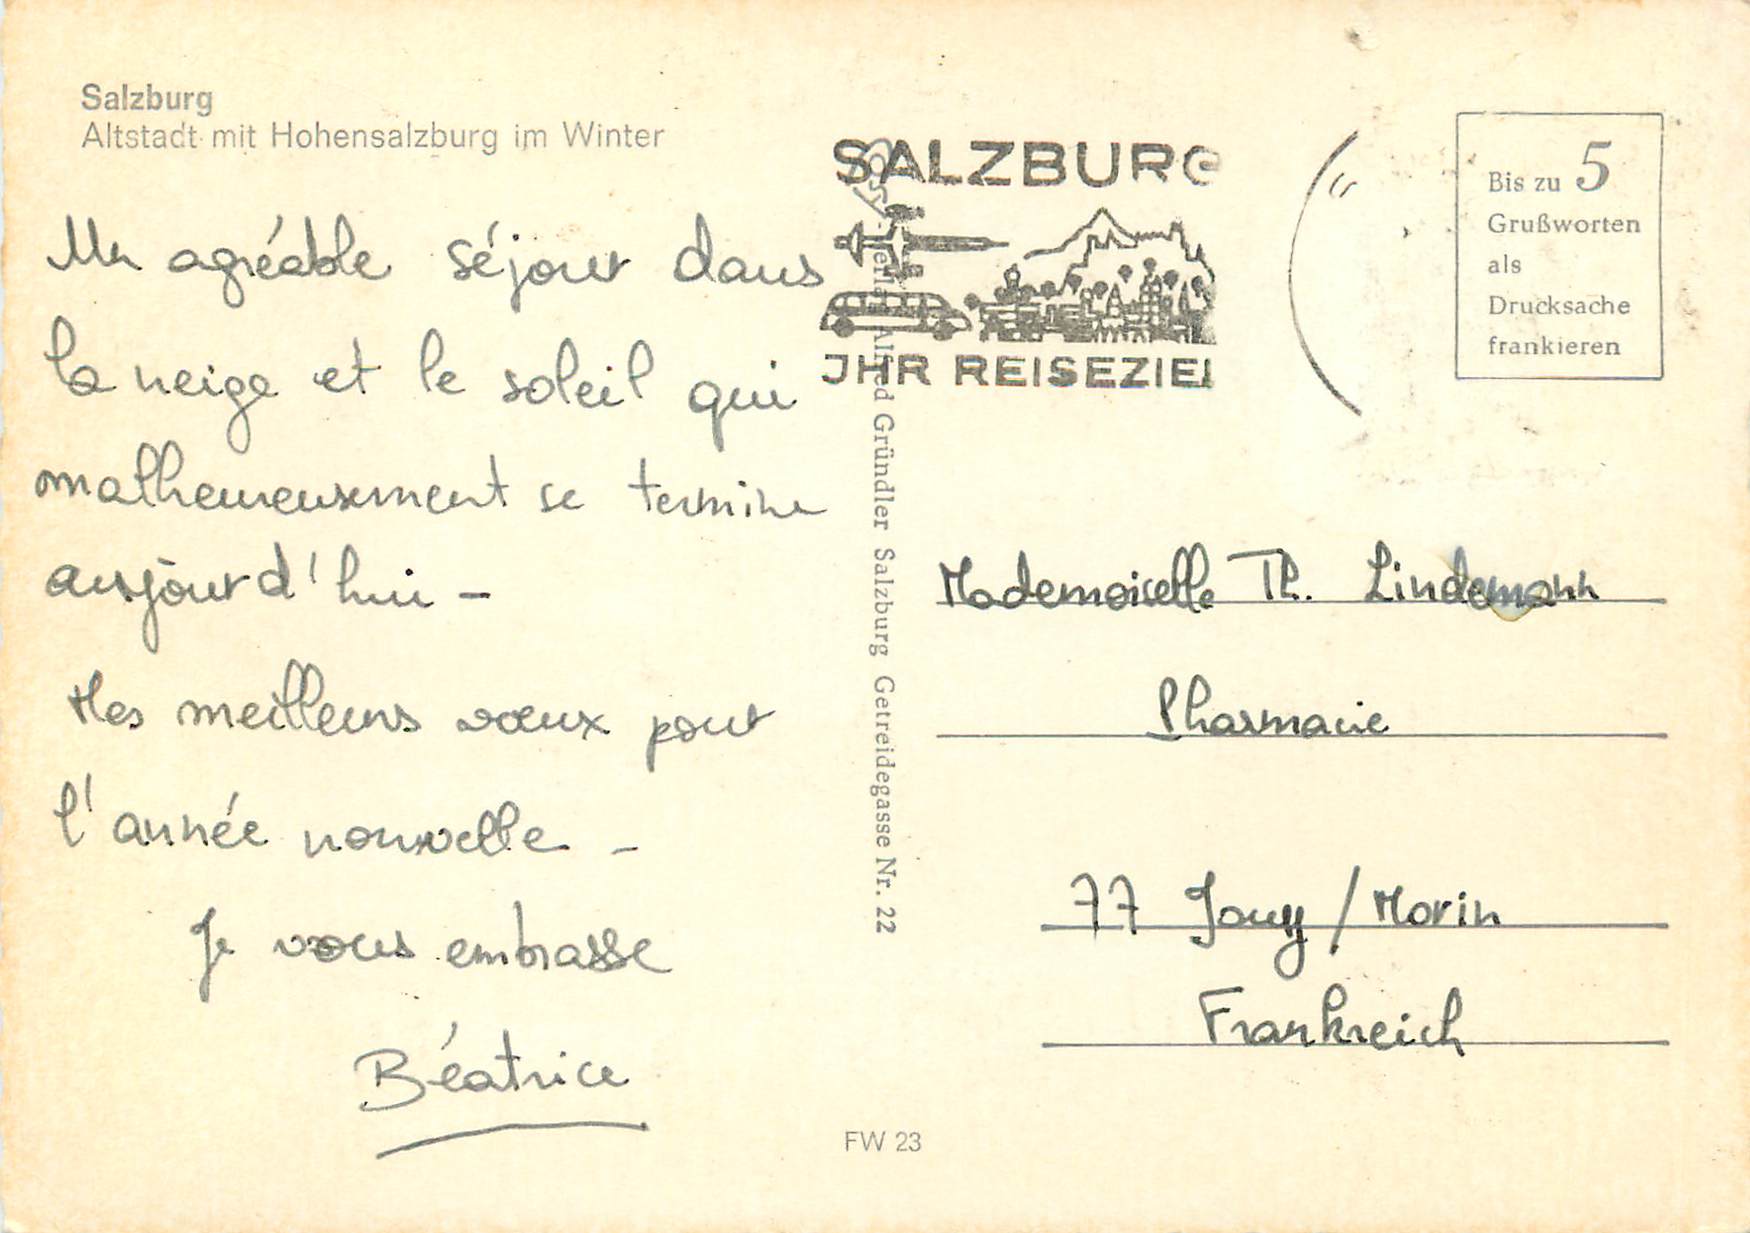 Salzburg
Altstadt mit Hohensalzburg im Winter
Un agréable séjour dans
la neige et le soleil qui
malheureusement se termine
aujourd'hui -
Mes meilleurs vœux pour
l'année nouvelle -
Je vous embrasse
Béatrice
SALZBURG
JHR REISEZIEL
Cosy-Verlag Alfred Gründler Salzburg Getreidegasse Nr. 22
Bis zu 5
Grußworten
als
Drucksache
frankieren
Mademoiselle Th. Lindemann
Pharmacie
77 Jouy / Morin
Frankreich
FW 23